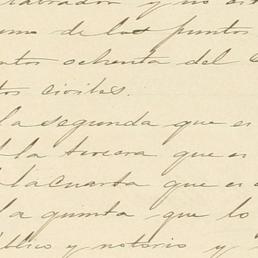 labrador y no es
uno de los puntos
ntos ochenta del C
tos civiles.
la segunda que es
la tercera que es
la cuarta que es
la quinta que lo
blico y notorio y